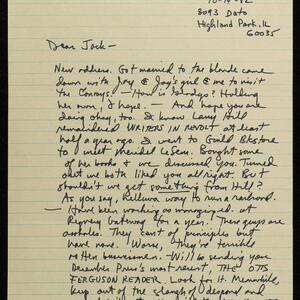 10-14-82
8093 Dato
Highland Park, IL
60035
Dear Jack—
New address. Got married to the blonde came
down with Jay & Jay's girl & me to visit
the Conroys. — How is Gladys? Holding
her own, I hope. — And hope you are
doing okay, too. I know Larry Hill
remaindered WRITERS IN REVOLT at least
half a year ago. I went to Guild Bkstore
to meet Meridel LeSueur. Bought some
of her books & we discussed you. Turned
out we both liked you all right. But
shouldn't we get something from Hill?
As you say, Helluva way to run a railroad.
— Have been working as managing ed. at
Regnery Gateway for a year. These guys are
assholes. They cant of principles but
have none. Worse, they're terrible
rotten businessmen. — Will be sending you
December Press's most recent, THE OTTO
FERGUSON READER. Look for it. Meanwhile,
keep out of the slough of despond and